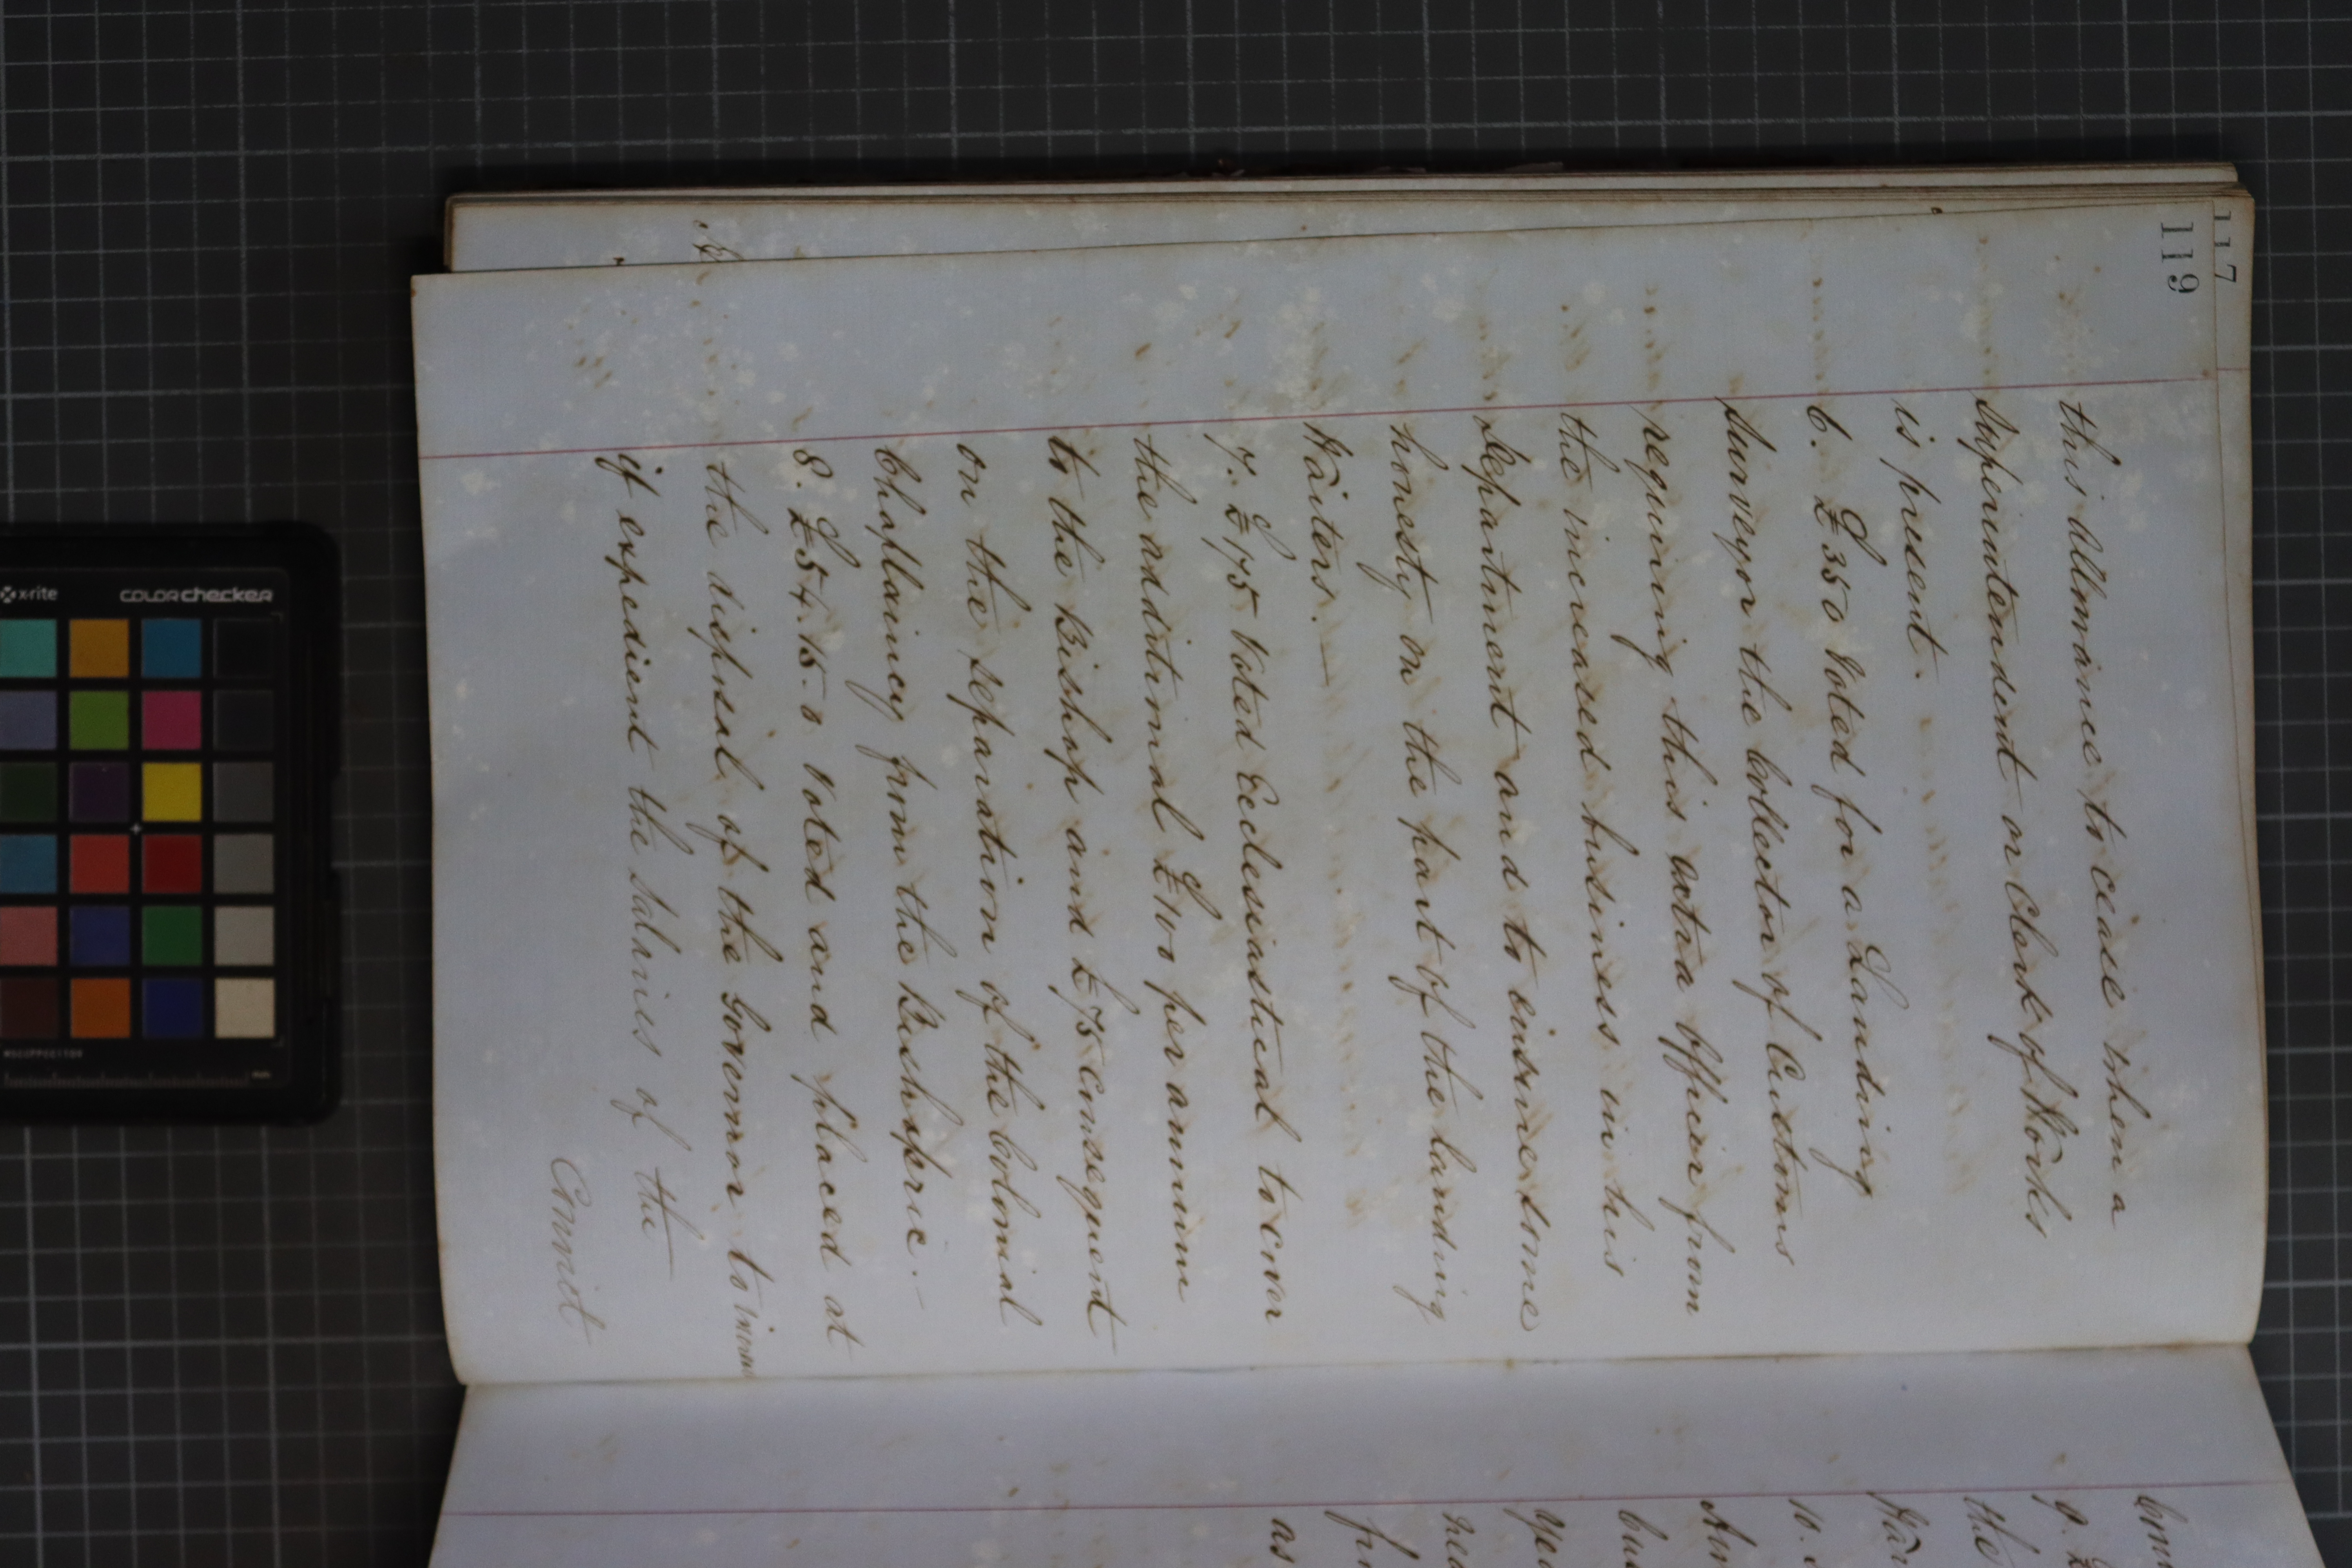 117
119
this allowance to cease when a
Superintendent or Clerk of Works
is present.
6. £350 Voted for a Landing
Surveyor the Collector of Customs
requiring this extra Officer from
the increased business in his
Department and to ensure some
honesty on the part of the landing
Waiters. —
7. £175 Voted Ecclesiastical to cover
the additional £100 per annum
to the Bishop and £75 consequent
on the separation of the Colonial
Chaplaincy from the Bishopric. —
8. £54.15.0 Voted and placed at
the disposal of the Governor to increase
if expedient the Salaries of the
Convict
9.
the
10.
as
x-rite
colorchecker